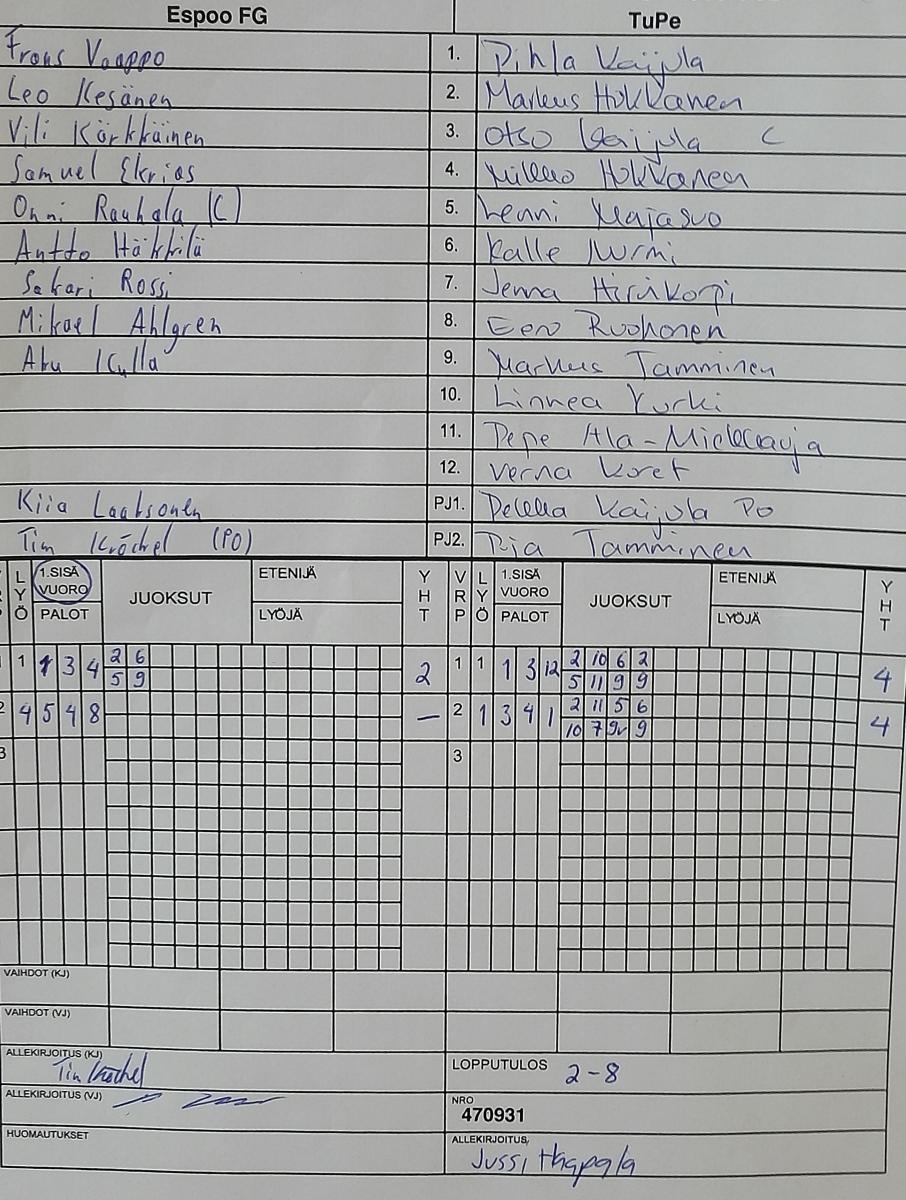 Espoo FG TuPe
Frans Vaappo 1. Pihla Kaijula
Leo Kesänen 2. Markus Hokkanen
Vili Kärkkäinen 3. Otso Kaijula C
Samuel Ekrias 4. Mikko Hokkanen
Onni Rauhala (C) 5. Lenni Majasuo
Antto Häkkilä 6. Kalle Nurmi
Sakari Rossi 7. Jenna Hirvikorpi
Mikael Ahlgren 8. Eero Ruohonen
Aku Kulla 9. Markus Tamminen
10. Linnea Kurki
11. Pepe Ala-
12. Verna Koret
Kiia Laaksonen PJ1. Pekka Kaijula PO
Tim Kröchel (PO) PJ2. Pia Tamminen
LYÖ 1.SISÄ VUORO PALOT JUOKSUT ETENIJÄ LYÖJÄ YHT VRP LYÖ 1.SISÄ VUORO PALOT JUOKSUT ETENIJÄ LYÖJÄ YHT
1 1 3 4 2 6 2 1 1 1 3 12 2 10 6 2 4
5 9 5 11 9 9
2 4 5 4 8 – 2 1 3 4 1 2 11 5 6 4
10 7 9v 9
3 3
VAIHDOT (KJ)
VAIHDOT (VJ)
ALLEKIRJOITUS (KJ) Tim Kröchel LOPPUTULOS 2-8
ALLEKIRJOITUS (VJ) NRO 470931
HUOMAUTUKSET ALLEKIRJOITUS Jussi Haapala